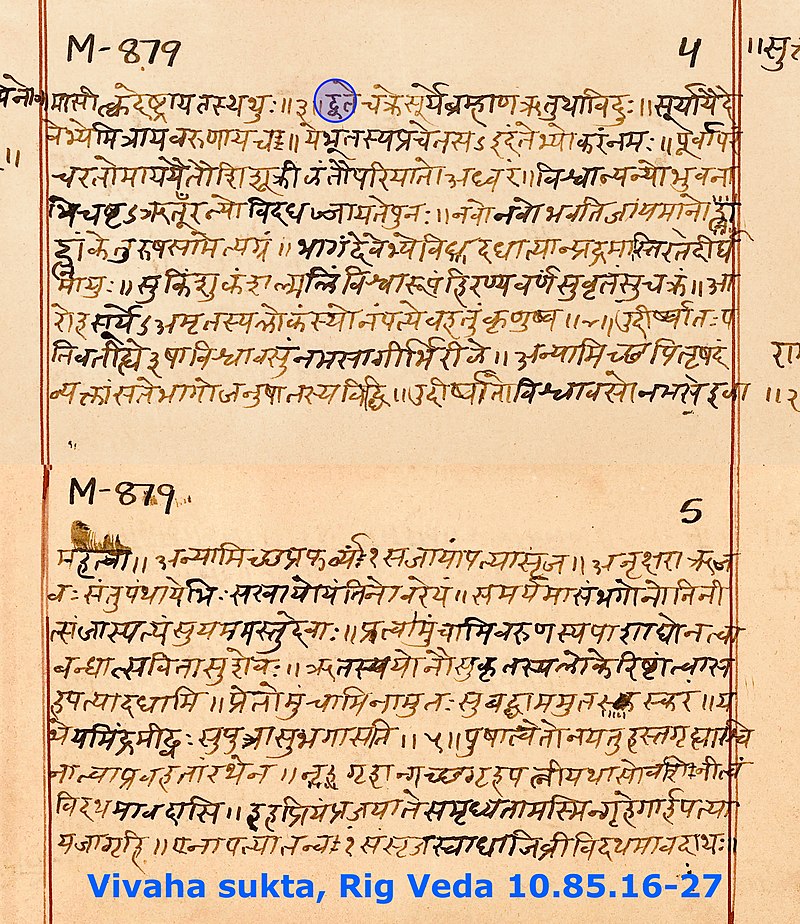 M-879 4
॥सु
मासीत्क्वदेष्ट्रायतस्थथुः॥३॥द्वेते चक्रेसूर्येब्रह्माणऋतुथाविदुः॥सूर्यायैदे
वेभ्येमित्रायवरुणायच॥येभूतस्यप्रचेतसऽइदंतेभ्योकरंनमः॥पूर्वापरं
चरतोमाययैतौशिशूक्रीळंतौपरियातोअध्वरं॥विश्वान्यन्योभुवना
भिचष्टऽऋतूँरन्योविदधज्जायतेपुनः॥नवोनवोभवतिजायमानोह्ना
ह्नांकेतुरुषसामेत्यग्रं॥भागंदेवेभ्येवि दधात्या स्तिरतेदीर्घ
मायुः॥सुकिंशुकंशल्मलिंविश्वारूपंहिरण्यवर्णंसुवृतंसुचक्रं॥आ
रोहसूर्येऽअमृतस्यलोकंस्योनंपत्येवहतुंकृणुष्व॥४॥उदीर्ष्वातःप
तिवतीह्ये३षाविश्वावसुंनमसागीर्भिरीळे॥अन्यामिच्छपितृषदं
व्यक्तांसतेभागोजनुषातस्यविद्धि॥उदीर्ष्वातोविश्वावसोनमसे
M-879
5
महेत्वा॥अन्यामिच्छप्रफर्व्यां१संजायांपत्यासृज॥अनृक्षराऋज
वःसंतुपंथायेभिःसखायोयंतिनोवरेयं॥समर्यमासंभगोनोनिनी
त्संजास्पत्यंसुयममस्तुदेवाः॥प्रत्वामुंचामिवरुणस्यपाशाद्येनत्वा
बन्धात्सवितासुशेवः॥ऋतस्ययोनौसुकृतस्यलोकेरिष्टांत्वास
हपत्यादधामि॥प्रेतोमुंचामिनामुतःसुबद्धाममुतस्करं॥य
थेयमिंद्रमीढ्वःसुपुत्रासुभगासति॥५॥पुषात्वेतोनयतुहस्तगृह्याश्वि
नात्वाप्रवहतांरथेन॥गृहान्गच्छगृहपत्नीयथासोवशिनीत्वं
विदथमावदासि॥इहप्रियंप्रजयातेसमृध्यतामस्मिन्गृहेगार्हपत्या
यजागृहि॥एनापत्यातन्वं१संसृजस्वाधाजिव्रीविदथमावदाथः॥
Vivaha sukta, Rig Veda 10.85.16-27